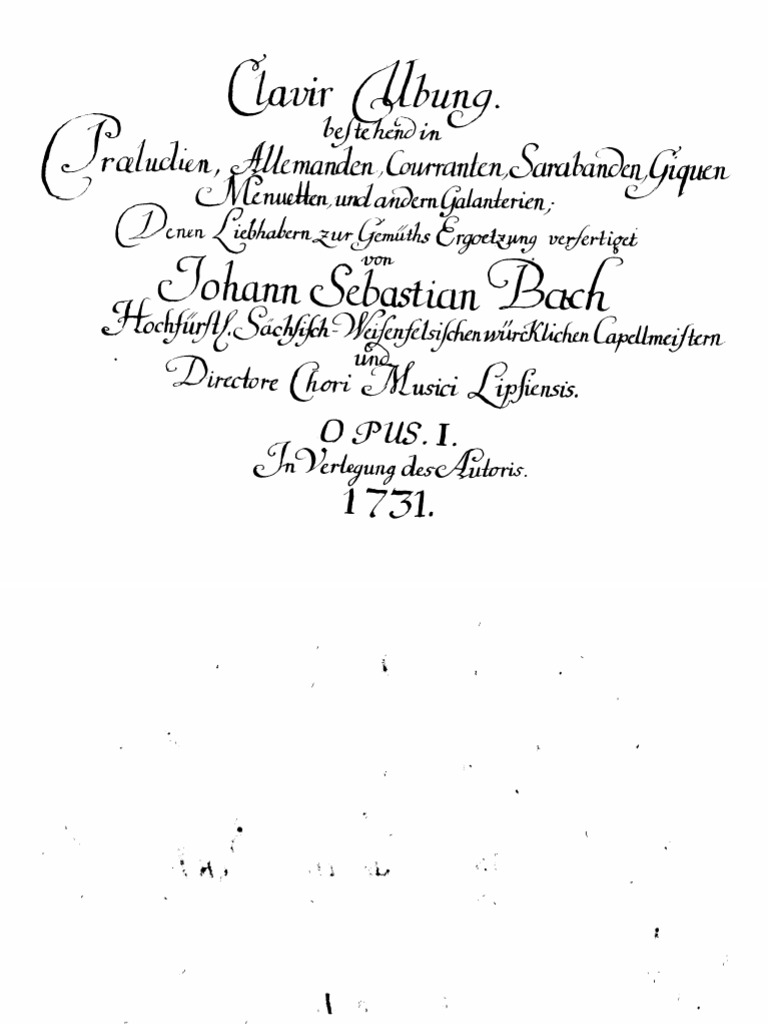 Clavir Ubung.
bestehend in
Præludien, Allemanden, Courranten, Sarabanden, Giquen
Menuetten, und andern Galanterien;
Denen Liebhabern zur Gemüths Ergoetzung verfertiget
von
Johann Sebastian Bach
Hochfürstl. Sächsisch-Weisenfelsischen würcklichen Capellmeistern
und
Directore Chori Musici Lipsiensis.
OPUS. I.
In Verlegung des Autoris.
1731.